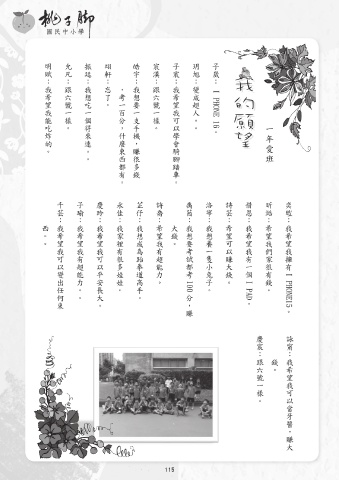 桃子腳
國民中小學
我的願望
一年愛班
子歲：I PHONE 16。
玥旭：變成超人。。
子宸：我希望我可以學會騎腳踏車。
宸漢：跟六號一樣。
皓宇：我想要一支手機，賺很多錢
，考一百分，什麼東西都有。
翊軒：忘了。
振廷：我想吃一個蔣來邊。。
允凡：跟六號一樣。
明斌：我希望我能吃炸的。
奕愷：我希望我擁有I PHONE15。
昕皓：希望我們家很有錢。
晉恩：我希望我有一個I PAD。
詩芸：希望可以賺大錢。
洛寧：我想養一隻小兔子。
禹茜：我想要考試都考100分，賺
大錢。
詩喬：希望我有超能力。
芷仔：我想成為跆拳道高手。
永佳：我家裡有很多娃娃。
慶玲：我希望我可以平安長大。
子瑜：我希望我有超能力。。
千芸：我希望我可以變出任何東
西。。
詠甯：我希望我可以當牙醫，賺大
錢。
慶宸：跟六號一樣。
115